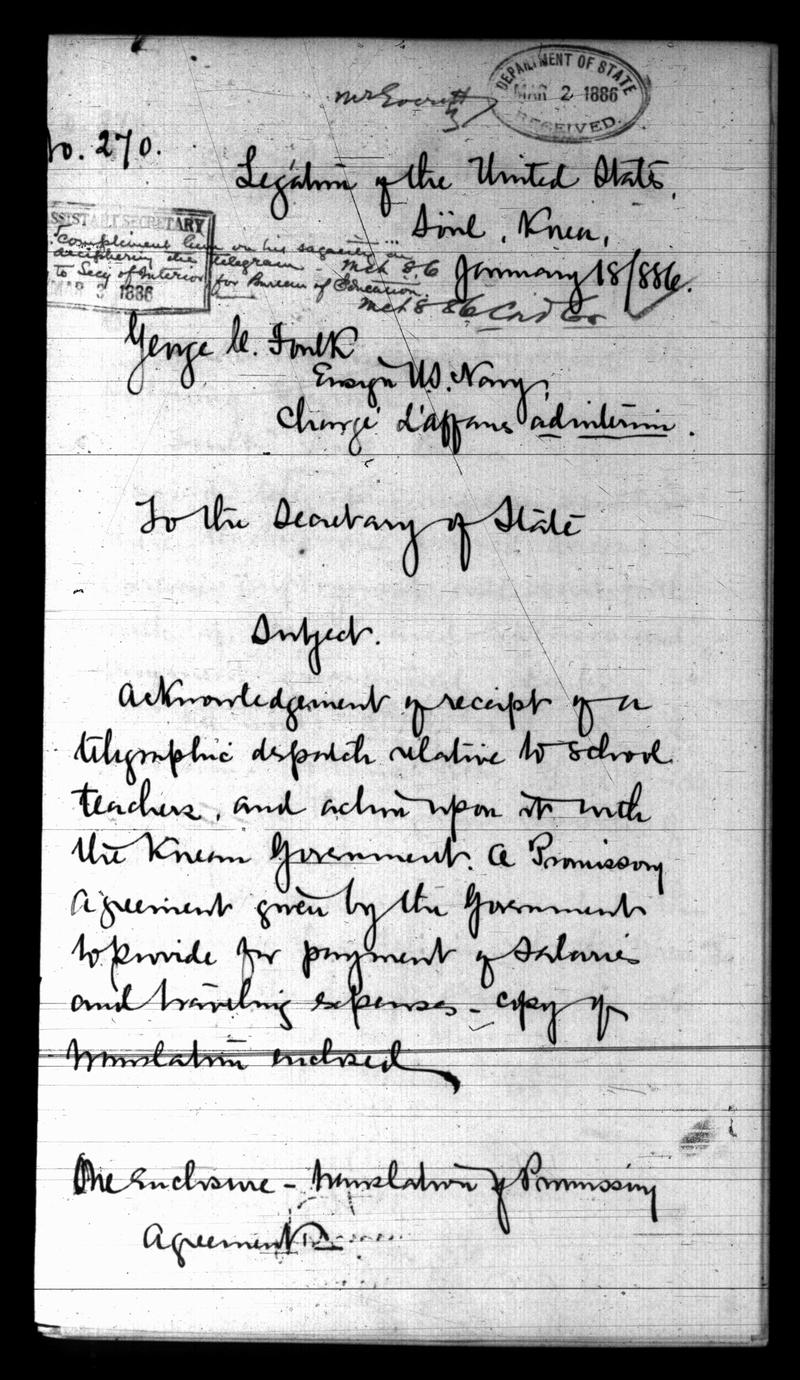 DEPARTMENT OF STATE
MAR 2 1886
RECEIVED.
Mr Everett
No. 270.
Legation of the United States,
Söul, Korea,
January 18/886.
ASSISTANT SECRETARY
MAR 3 1886
Compliment him on his sagacity in
deciphering the telegram - Mch 8. 6
To Secy of Interior for Bureau of Education
Mch 8 86
George C. Foulk
Ensign U.S. Navy,
Chargé d'affaires ad interim.
To the Secretary of State
Subject.
Acknowledgement of receipt of a
telegraphic despatch relative to school
teachers, and action upon it with
the Korean Government. A Promissory
Agreement given by the Government
to provide for payment of salaries
and traveling expenses - copy of
translation enclosed
One Enclosure - translation of Promissory
Agreement